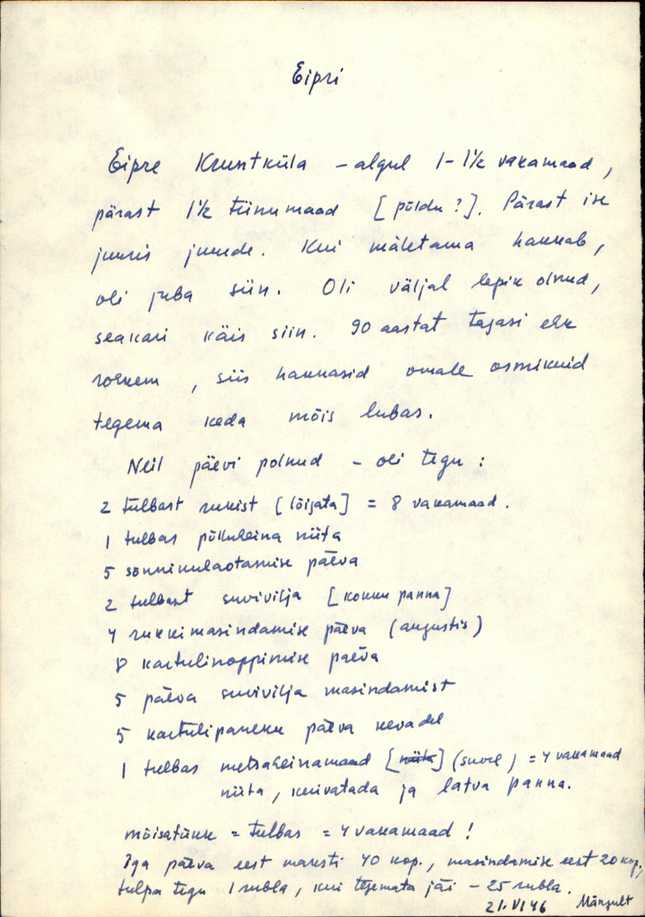 Eipri
Eipre Kruntküla - algul 1-1½ vakamaad,
pärast 1½ tiinumaad [põldu?]. Pärast ise
juuris juurde. Kui mäletama hakkab,
oli juba siin. Oli väljal lepik olnud,
seakari käis siin. 90 aastat tagasi ehk
rohkem, siis hakkasid omale osmikuid
tegema keda mõis lubas.
Neil päevi polnud - oli tegu:
2 tulbast rukist [lõigata] = 8 vakamaad.
1 tulbas põlluheina niita
5 sõnnikulaotamise päeva
2 tulbast suvivilja [kokku panna]
4 rukkimasindamise päeva (augustis)
8 kartulinoppimise päeva
5 päeva suvivilja masindamist
5 kartulipaneku päeva kevadel
1 tulbas metsaheinamaad [niita] (suvel) = 4 vakamaad
niita, kuivatada ja latva panna.
mõisatükk = tulbas = 4 vakamaad!
Iga päeva eest maksti 40 kop., masindamise eest 20 kop.,
tulpa tegu 1 rubla, kui tegemata jäi - 25 rubla.
21.VI 46 Mängult